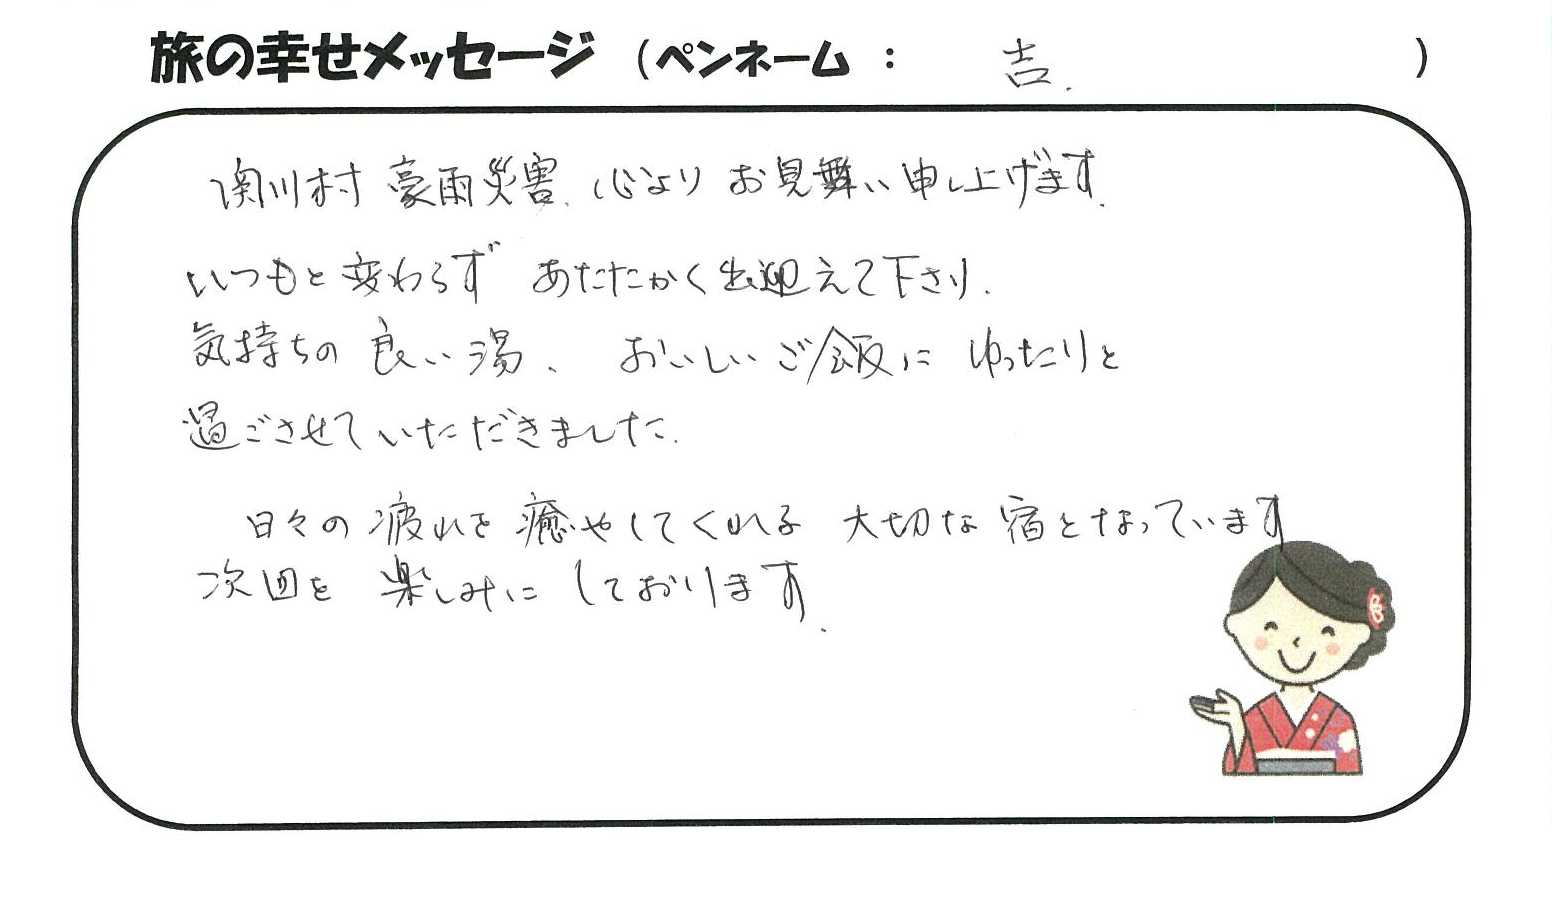 旅の幸せメッセージ (ペンネーム : 吉. )
関川村 豪雨災害. 心より お見舞い申し上げます.
いつもと変わらず あたたかく出迎えて下さり.
気持ちの 良い湯、 おいしいご飯に ゆったりと
過ごさせていただきました.
日々の 疲れを 癒やしてくれる 大切な 宿となっています
次回を 楽しみに しております.